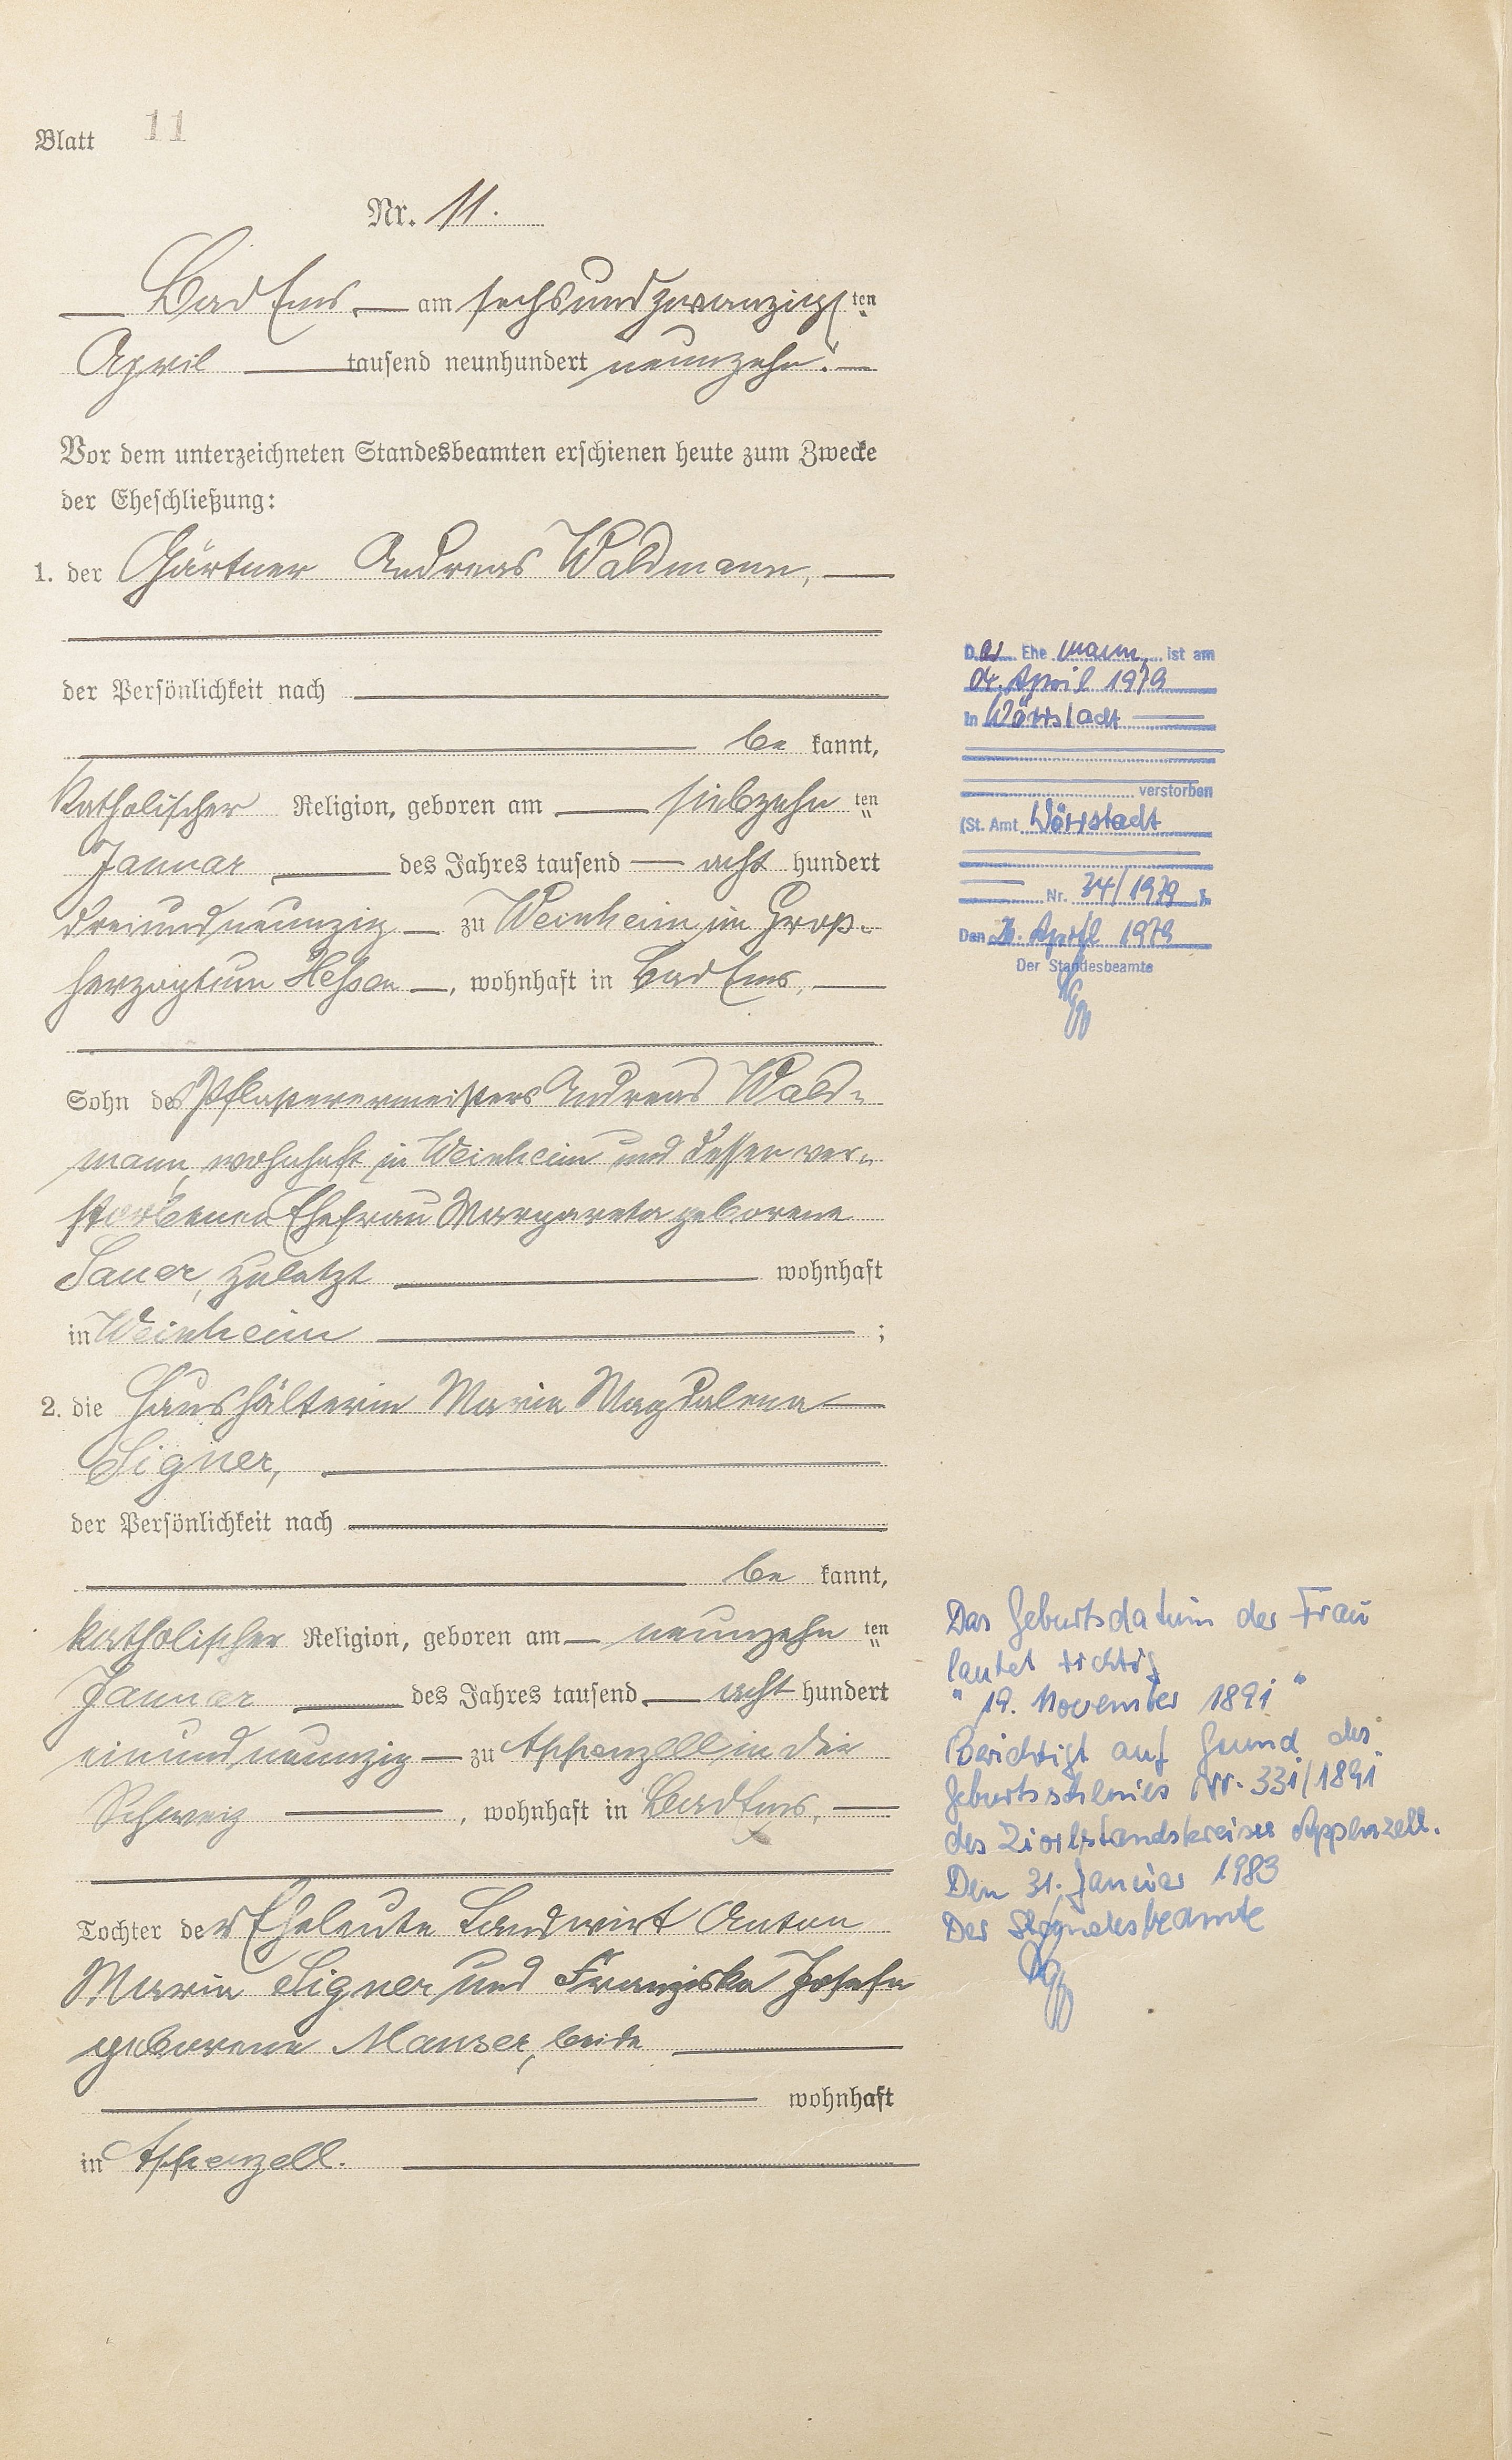 Blatt 11
Nr. 11.
Bad Ems, am sechsundzwanzigsten
April tausend neunhundert neunzehn.
Vor dem unterzeichneten Standesbeamten erschienen heute zum Zwecke
der Eheschließung:
1. der Gärtner Andreas Waldmann,
der Persönlichkeit nach
be kannt,
katholischer Religion, geboren am siebzehn ten
Januar des Jahres tausend acht hundert
dreiundneunzig zu Weinheim im Groß-
herzogtum Hessen, wohnhaft in Bad Ems,
Sohn des Pflasterermeisters Andreas Wald-
mann, wohnhaft in Weinheim und dessen ver-
storbenen Ehefrau Margareta geborene
Sauer, zuletzt wohnhaft
in Weinheim ;
2. die Haushälterin Maria Magdalena
Signer,
der Persönlichkeit nach
be kannt,
katholischer Religion, geboren am neunzehn ten
Januar des Jahres tausend acht hundert
einundneunzig zu Appenzell in der
Schweiz, wohnhaft in Bad Ems,
Tochter der Eheleute Landwirt Anton
Maria Signer und Franziska Josefa
geborene Manser, beide
wohnhaft
in Appenzell.
Der Ehe mann ist am
04. April 1979
in Wörrstadt
verstorben
(St. Amt Wörrstadt
Nr. 34/1979 )
Den April 1979
Der Standesbeamte
Das Geburtsdatum der Frau
lautet richtig
"19. November 1891"
Berichtigt auf Grund des
Geburtsscheines Nr. 331/1891
des Zivilstandskreises Appenzell.
Den 31. Januar 1983
Der Standesbeamte